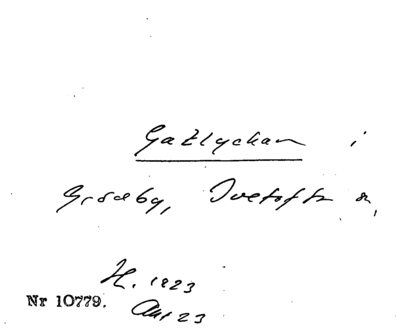 Gatlychan i
Grödby, Ivetofta s,
H. 1923
Nr 10779.